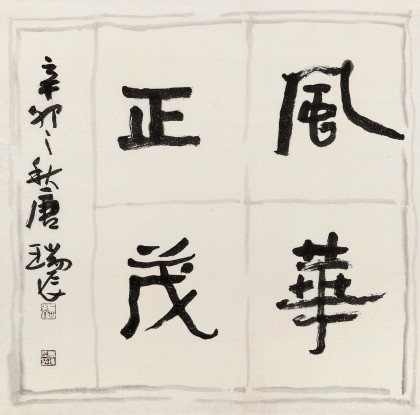 風華
正茂
辛卯之秋唐瑞辰